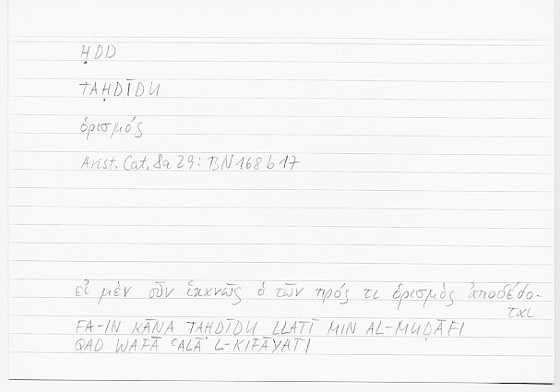 ḤDD
TAḤDĪDU
ὁρισμός
Arist. Cat. 8a 29: BN 168 b 17
εἰ μὲν οὖν ἱκανῶς ὁ τῶν πρός τι ὁρισμὸς ἀποδέδο-
ται
FA-IN KĀNA TAḤDĪDU LLATĪ MIN AL-MUḌĀFI
QAD WAFĀ ʿALĀ L-KIFĀYATI